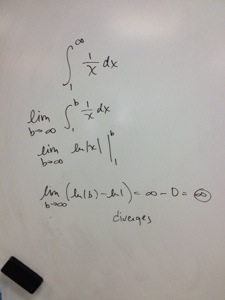 ∫₁^∞ 1/x dx
lim b→∞ ∫₁^b 1/x dx
lim b→∞ ln|x| |₁^b
lim b→∞ (ln(b) - ln1) = ∞ - 0 = ∞
diverges